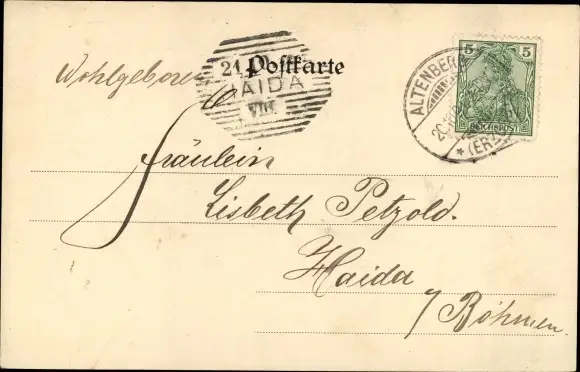 Postkarte
5 5
REICHSPOST
ALTENBERG
* (ERZ
21
HAIDA
VIII
Wohlgeboren
Fräulein
Lisbeth Petzold.
Haida
/ Böhmen.